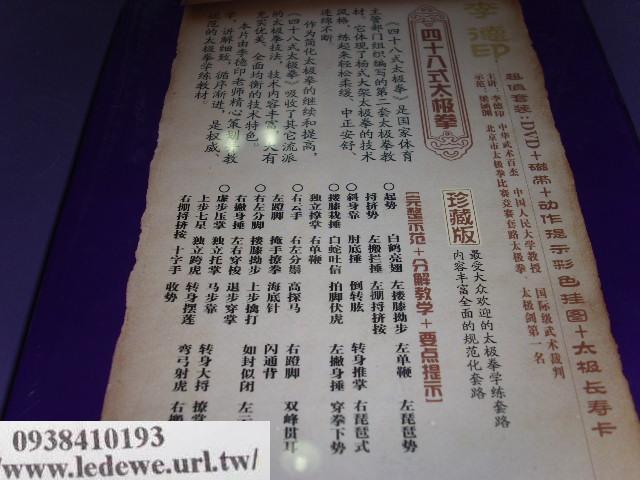 李德印
超值套装:DVD+磁带+动作提示彩色挂图+太极长寿卡
主讲:李德印 中华武术百杰 中国人民大学教授 国际级武术裁判
示范: 北京市太极拳比赛竞赛套路太极拳 太极剑第一名
四十八式太极拳
珍藏版
最受大众欢迎的太极拳学练套路
内容丰富全面的规范化套路
【完整示范+分解教学+要点提示】
《四十八式太极拳》是国家体育
主管部门组织编写的第二套太极拳教
材,它体现了杨式大架太极拳的技术
风格,练起来轻松柔缓、中正安舒、
连绵不断。
作为简化太极拳的继续和提高,
《四十八式太极拳》吸收了其它流派
的太极拳技法,技术内容丰富,具有
充实优美、全面均衡的技术特色。
本片由李德印老师精心策划并教
学,讲解细致,循序渐进,是权威、
规范的太极拳学练教材。
○起势 白鹤亮翅 左搂膝拗步 左单鞭 左琵琶势
捋挤势 左搬拦捶 左掤捋挤按
○斜身靠 肘底捶 倒转肱 转身推掌 右琵琶式
○搂膝栽捶 白蛇吐信 拍脚伏虎 左撇身捶 穿拳下势
独立撑掌 右单鞭
○右云手 右左分鬃 高探马 右蹬脚 双峰贯耳
左蹬脚 掩手撩拳 海底针 闪通背
○右左分脚 搂膝拗步 上步擒打 如封似闭 左云
右撇身捶 左右穿梭 退步穿掌
○虚步压掌 独立托掌 马步靠 转身大捋 撩掌
上步七星 独立跨虎 转身摆莲 弯弓射虎 右搬
右掤捋挤按 十字手 收势
0938410193
/www.ledewe.url.tw/